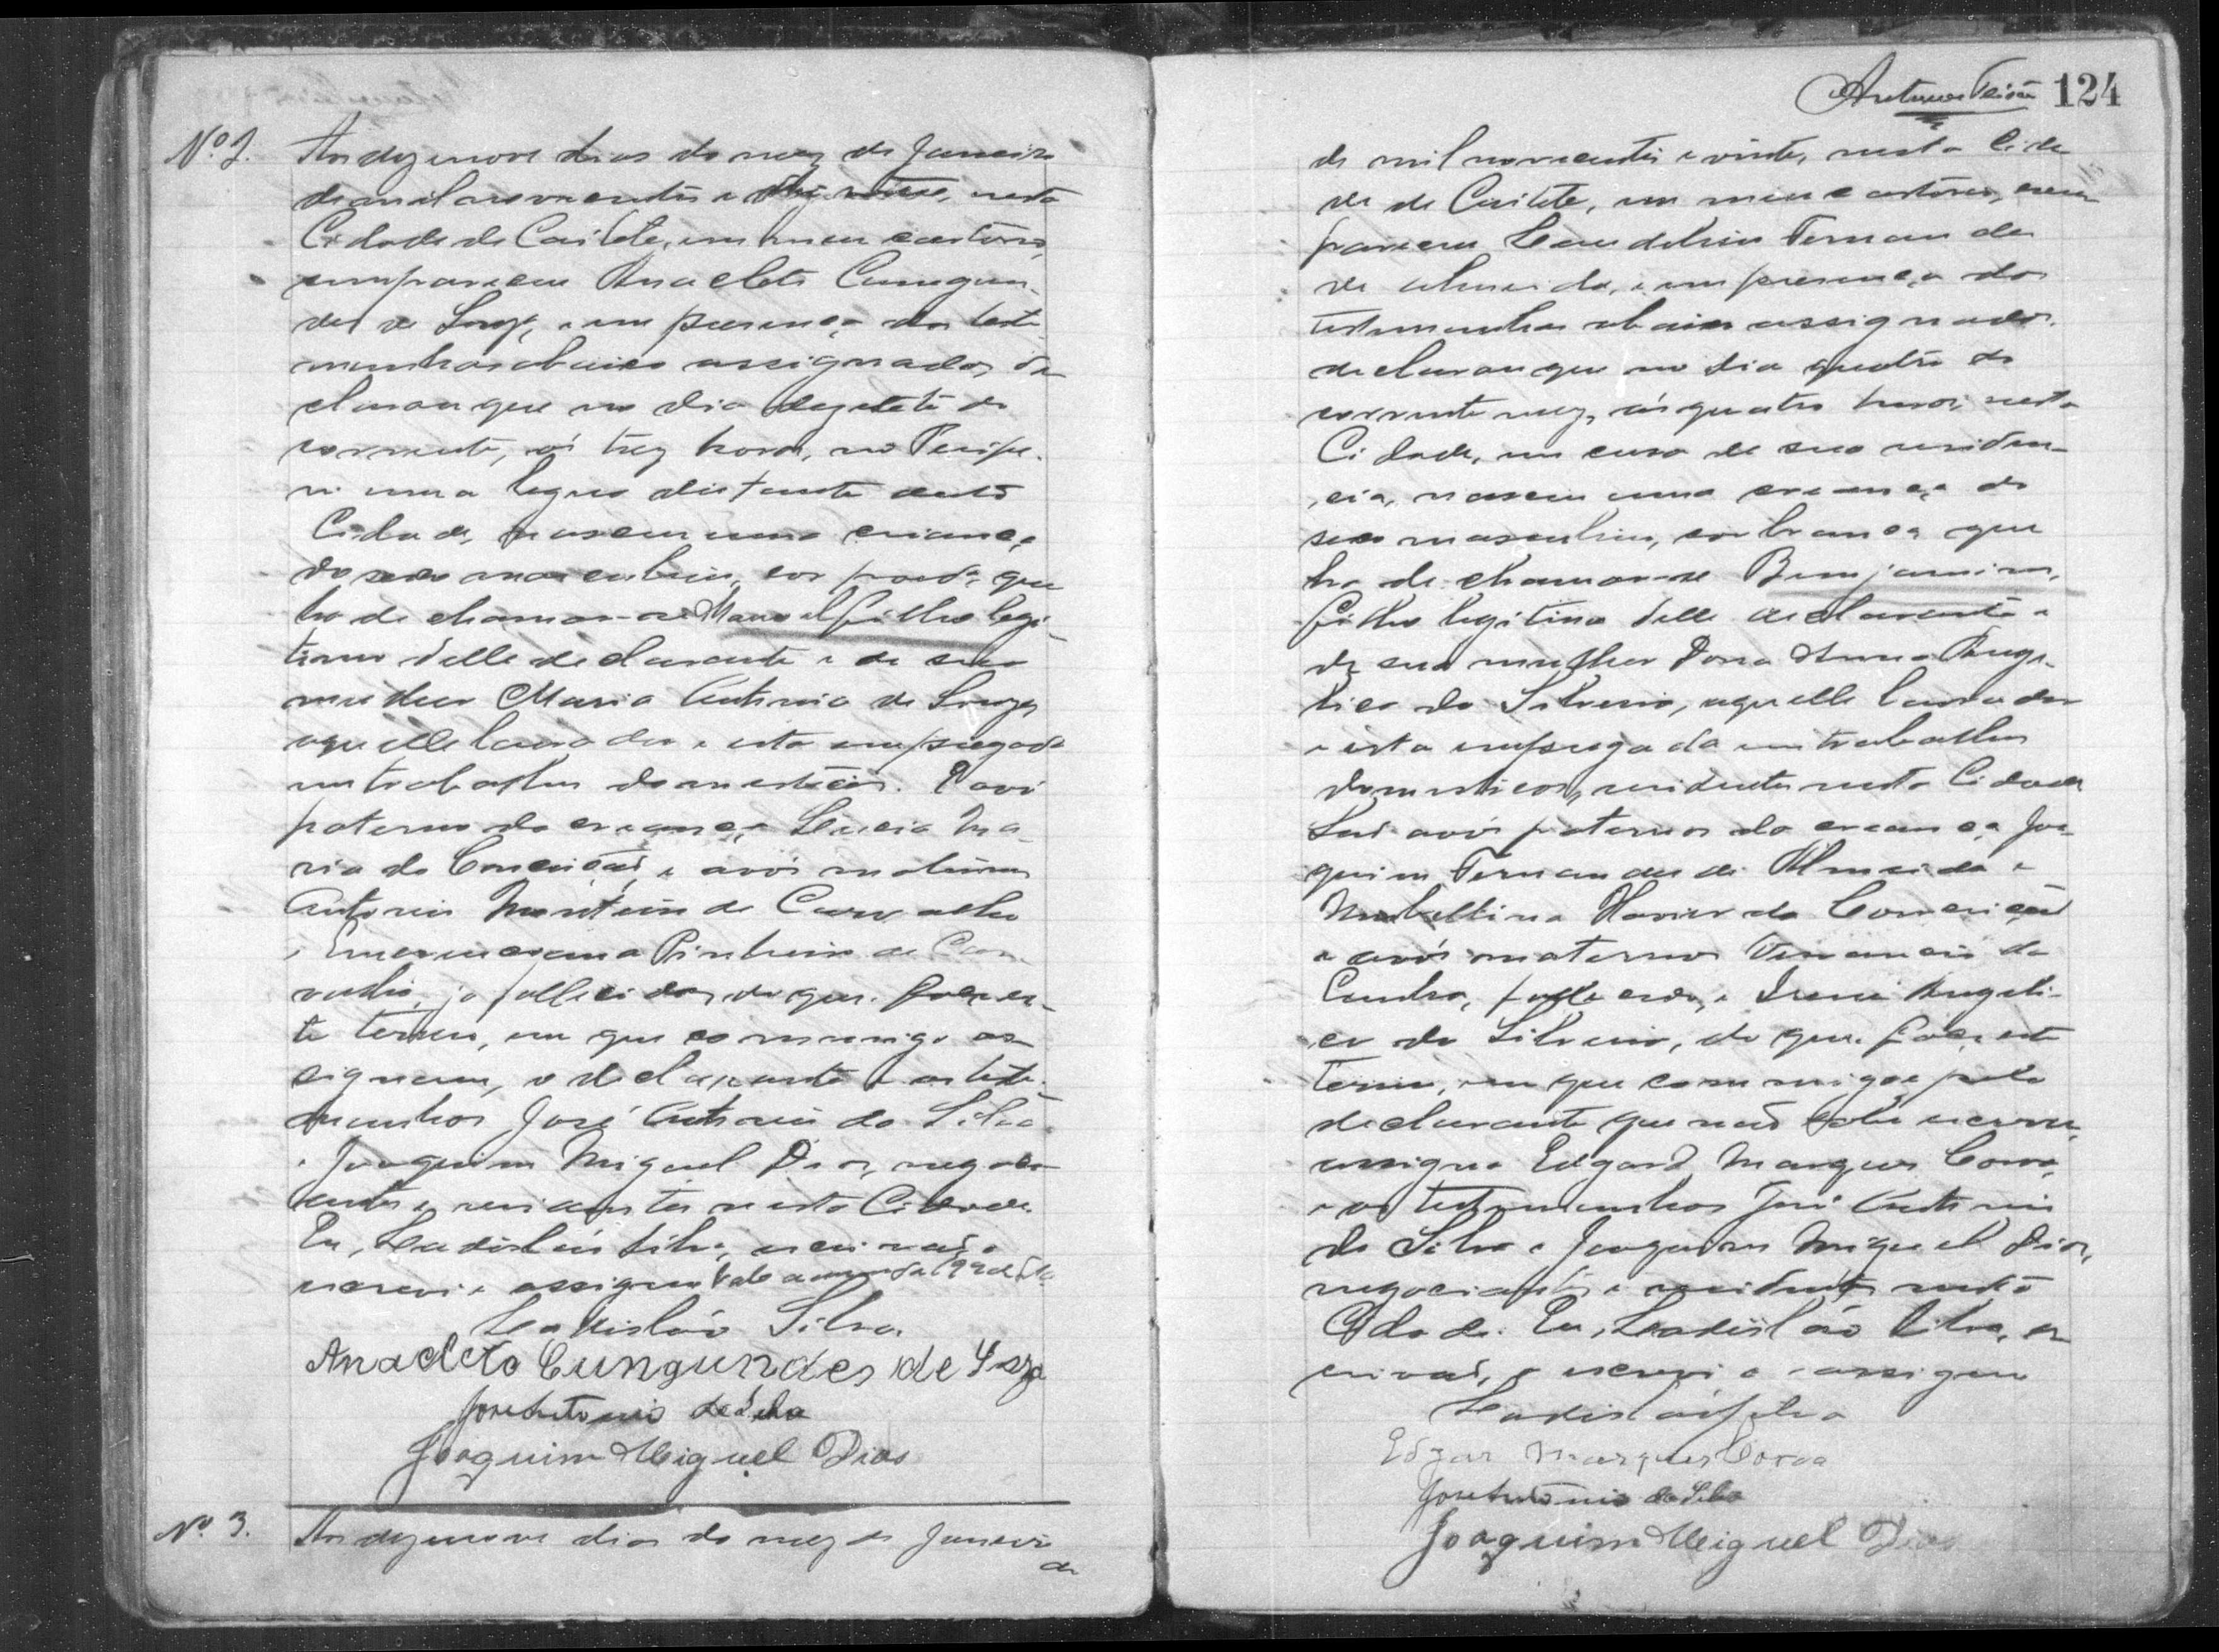 Nº 2. Aos dezenove dias do mez de Janeiro
de mil novecentos e vinte, nesta
Cidade de Caiteté, em meu cartorio,
compareceu Anacleto Cunegun-
des de Souza, e em presença das teste
munhas abaixo assignadas, de
clarou que no dia dezesete do
corrente, ás trez horas, no
uma legua distante desta
Cidade, nasceu uma criança
do sexo masculino, cor parda, que
ha de chamar-se Manoel filho legi-
timo delle declarante e de sua
mulher Maria Antonia de Souza,
aquelle lavrador e esta empregada
em trabalhos domesticos. E avó
paterna da creança Lucia Ma-
ria da Conceição, e avós maternos
Antonio Monteiro de Carvalho
e Pinheiro de Car-
valho, já fallecidos, do que faço es-
te termo, em que commigo as-
signam, o declarante e as teste-
munhas José Antonio da Silva
e Joaquim Miguel Dias, negoci-
antes e residentes nesta Cidade.
Eu, Ladisláo Silva, escrivão o
escrevi e assigno
Ladisláo Silva
Anacleto Cungundes de Souza
José Antonio da Silva
Joaquim Miguel Dias
Nº 3. Aos dezenove dias do mez de Janeiro
de
124
de mil novecentos e vinte, nesta Cida
de de Caiteté, em meu cartorio, com-
pareceu Claudelino Fernandes
de Almeida, e em presença das
testemunhas abaixo assignadas,
declarou que no dia quatro do
corrente mez, ás quatro horas, nesta
Cidade, em casa de sua residen-
cia, nasceu uma creança do
sexo masculino, cor branca que
ha de chamar-se Benjamim,
filho legitimo delle declarante e
de sua mulher Dona Anna Ange-
lica da Silveira, aquelle lavrador
e esta empregada em trabalhos
domesticos, residentes nesta Cidade
São avós paternos da creança Joa-
quim Fernandes de Almeida e
Umbellina Xavier da Conceição
e avós maternos Venancio da
Cunha, fallecido, e Irene Angeli-
ca da Silveira, do que faço este
termo, em que commigo e pelo
declarante que não sabe escrever,
assigna Edgard Marques Cova,
e as testemunhas José Antonio
da Silva e Joaquim Miguel Dias,
negociantes e residentes nesta
Cidade. Eu, Ladisláo Silva, es
crivão, o escrevi e assigno
Ladisláo Silva
Edgar Marques Cova
José Antonio da Silva
Joaquim Miguel Dias